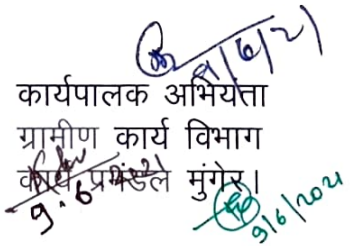 9/6/21
कार्यपालक अभियता
ग्रामीण कार्य विभाग
कार्य प्रमंडल मुंगेर।
9.6.2021
9/6/2021